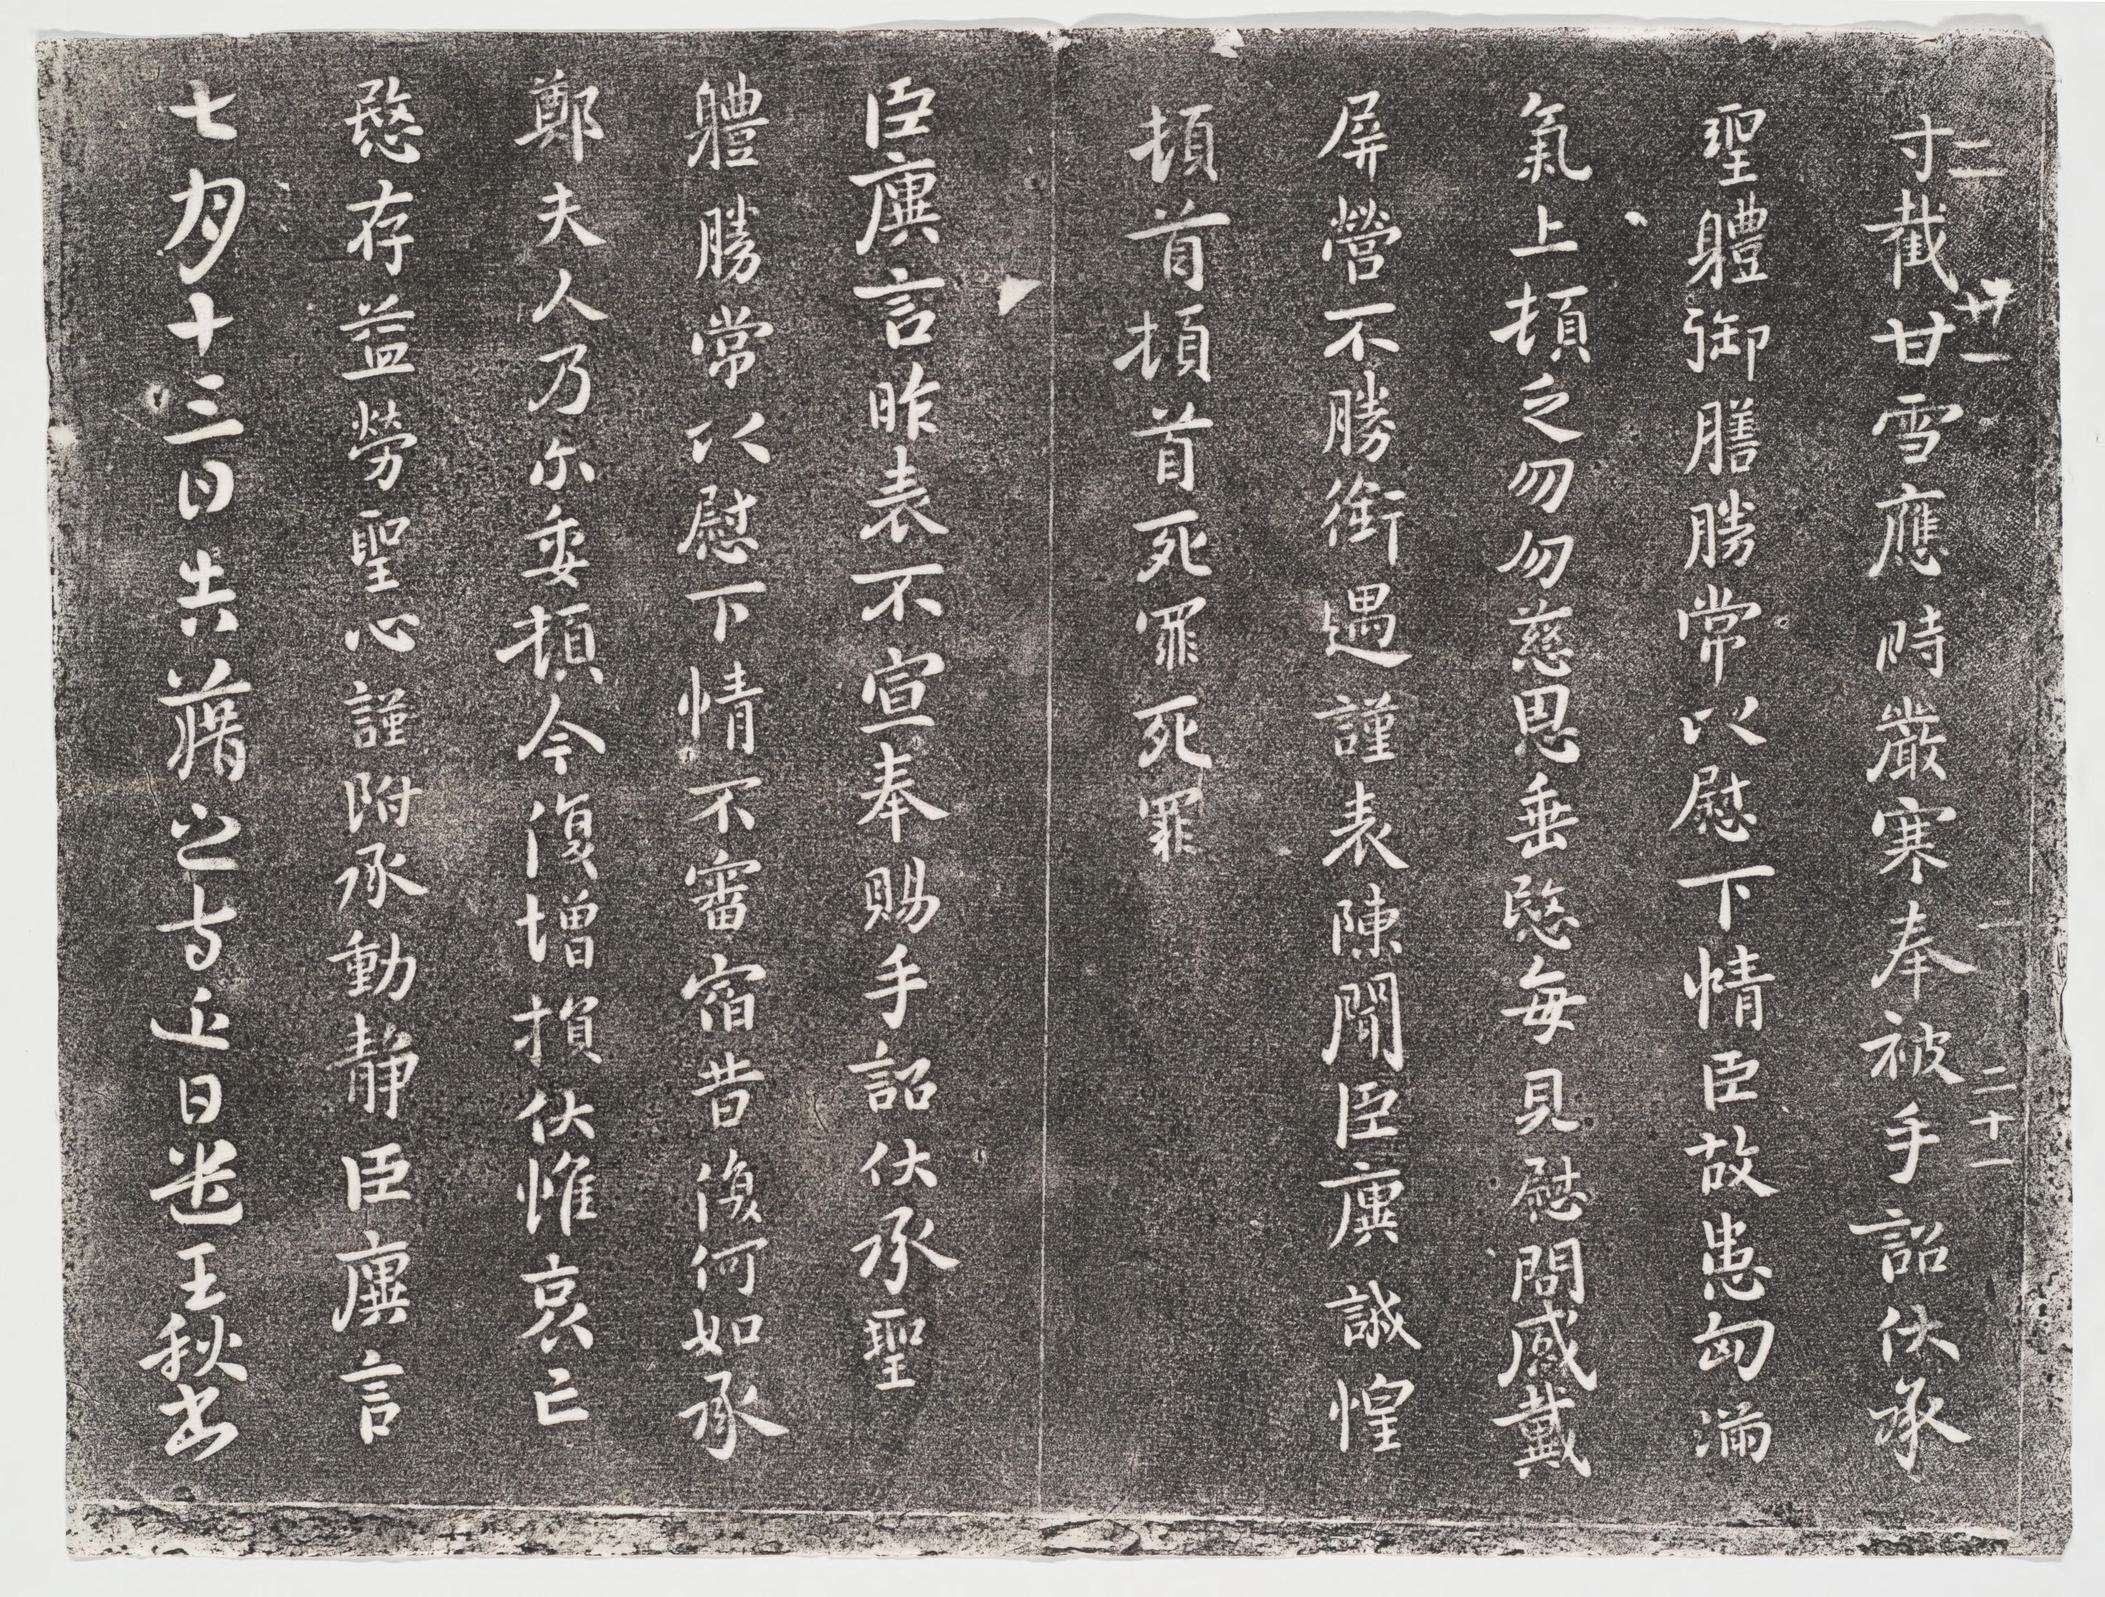 寸截甘雪應時嚴寒奉被手詔伏承
二
卄一
二
二十一
聖體御膳勝常以慰下情臣故患匈滿
氣上頓乏勿勿慈恩垂愍每見慰問感戴
屏營不勝銜遇謹表陳聞臣廙誠惶
頓首頓首死罪死罪
臣廙言昨表不宣奉賜手詔伏承聖
體勝常以慰下情不審宿昔復何如承
鄭夫人乃尓委頓今復增損伏惟哀亡
愍存益勞聖心謹附承動静臣廙言
七月十三日告藉之等近日遣王秋書